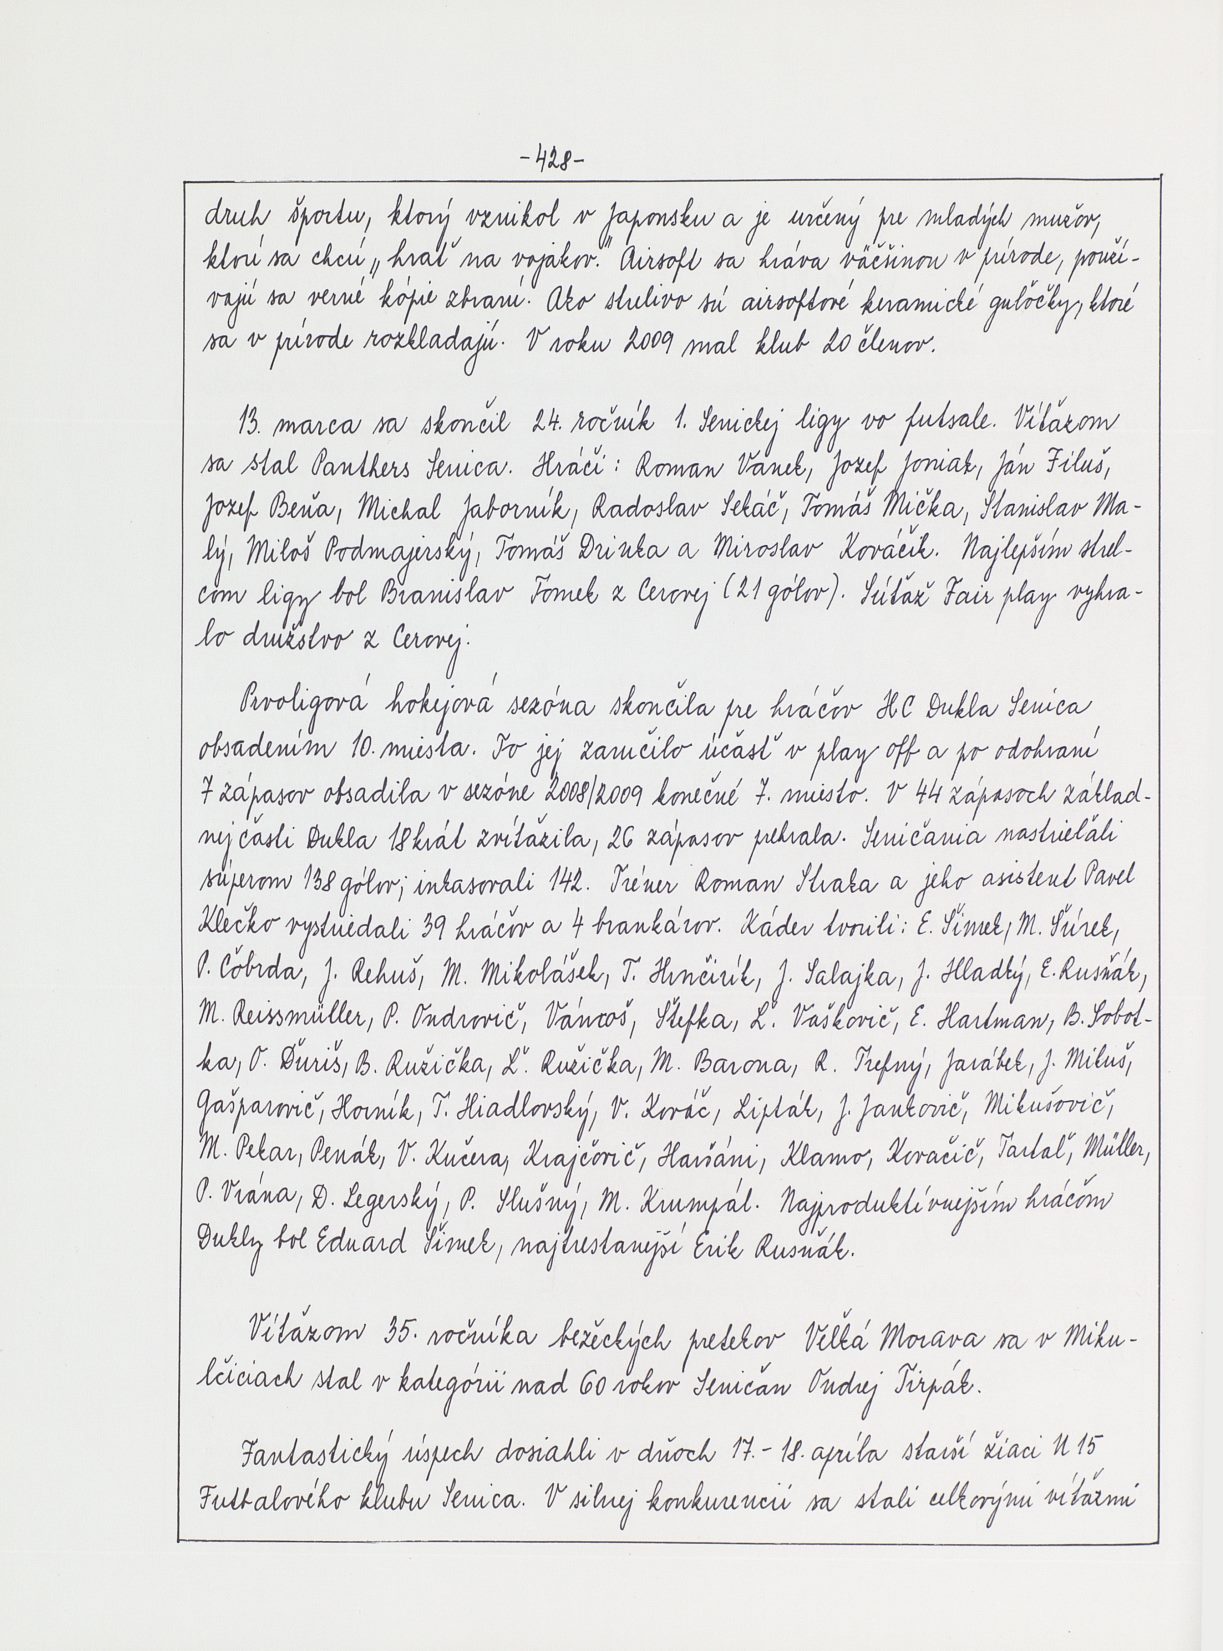 -428-
druh športu, ktorý vznikol v Japonsku a je určený pre mladých mužov,
ktorí sa chcú „hrať na vojakov." Airsoft sa hráva väčšinou v prírode, použí-
vajú sa verné kópie zbraní. Ako strelivo sú airsoftové keramické guľôčky, ktoré
sa v prírode rozkladajú. V roku 2009 mal klub 20 členov.
13. marca sa skončil 24. ročník 1. Senickej ligy vo futsale. Víťazom
sa stal Panthers Senica. Hráči: Roman Vanek, Jozef Joniak, Ján Filuš,
Jozef Beňa, Michal Jaborník, Radoslav Sekáč, Tomáš Mička, Stanislav Ma-
lý, Miloš Podmajerský, Tomáš Drinka a Miroslav Kováčik. Najlepším strel-
com ligy bol Branislav Tomek z Cerovej (21 gólov). Súťaž Fair play vyhra-
lo družstvo z Cerovej.
Prvoligová hokejová sezóna skončila pre hráčov HC Dukla Senica
obsadením 10. miesta. To jej zaručilo účasť v play off a po odohraní
7 zápasov obsadila v sezóne 2008/2009 konečné 7. miesto. V 44 zápasoch základ-
nej časti Dukla 18 krát zvíťazila, 26 zápasov prehrala. Seničania nastrieľali
súperom 138 gólov, inkasovali 142. Tréner Roman Straka a jeho asistent Pavel
Klečko vystriedali 39 hráčov a 4 brankárov. Káder tvorili: E. Šimek, M. Šúrek,
P. Čobrda, J. Rehuš, M. Mikolášek, T. Hrnčirík, J. Salajka, J. Hladký, E. Rusňák,
M. Reissmüller, P. Ondrovič, Váncoš, Štefka, Ľ. Vaškovič, E. Hartman, B. Sobot-
ka, O. Ďuriš, B. Ružička, Ľ. Ružička, M. Barona, R. Trefný, Jarábek, J. Mikuš,
Gašparovič, Horník, T. Hiadlovský, V. Kováč, Lipták, J. Jankovič, Mikušovič,
M. Pekar, Penák, V. Kučera, Krajčovič, Haršáni, Klamo, Kovačič, Tartaľ, Müller,
P. Vrána, D. Legerský, P. Slušný, M. Krumpál. Najproduktívnejším hráčom
Dukly bol Eduard Šimek, najtrestanejší Erik Rusňák.
Víťazom 35. ročníka bežeckých pretekov Veľká Morava sa v Miku-
lčiciach stal v kategórii nad 60 rokov Seničan Ondrej Tirpák.
Fantastický úspech dosiahli v dňoch 17. - 18. apríla starší žiaci U 15
Futbalového klubu Senica. V silnej konkurencii sa stali celkovými víťazmi